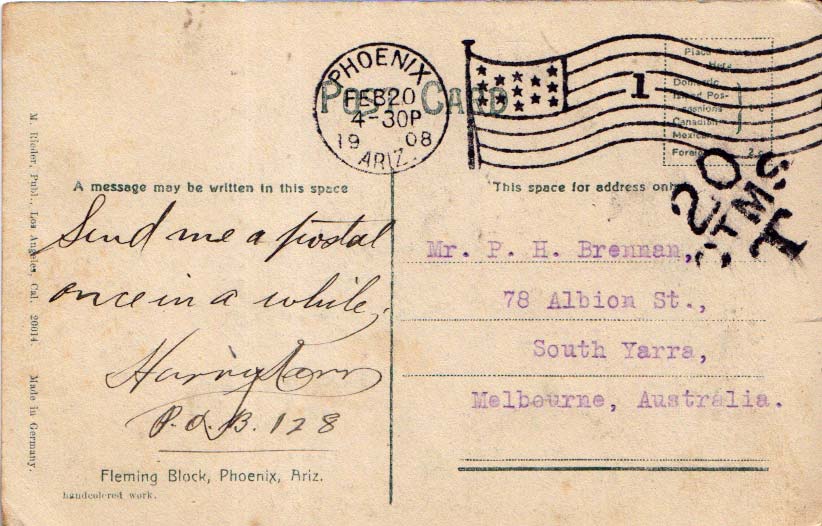 POST CARD
PHOENIX
FEB 20
4-30P
1908
ARIZ.
1
Place
Here
Domestic
Canadian
Mexican
Foreign 2 c
20
CTMS
T
A message may be written in this space
This space for address only
Send me a postal
once in a while,
Harry Carr
P.O.B. 128
Mr. P. H. Brennan,
78 Albion St.,
South Yarra,
Melbourne, Australia.
Fleming Block, Phoenix, Ariz.
handcolored work.
M. Rieder, Publ., Los Angeles, Cal. 20014. Made in Germany.